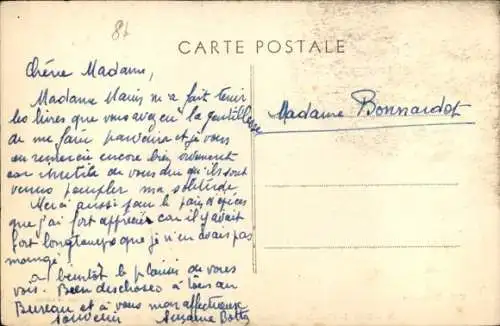 81
CARTE POSTALE
Chère Madame,
Madame Maris m'a fait tenir
les livres que vous avez eu la gentillesse
de me faire parvenir et je vous
en remercie encore bien vivement
car inutile de vous dire qu'ils sont
venus peupler ma solitude.
Merci aussi pour le pain d'épices
que j'ai fort apprécié car il y avait
fort longtemps que je n'en avais pas
mangé.
A bientôt le plaisir de vous
voir. Bien des choses à tous au
Bureau et à vous mon affectueux
souvenir Suzanne
Madame Bonnardot